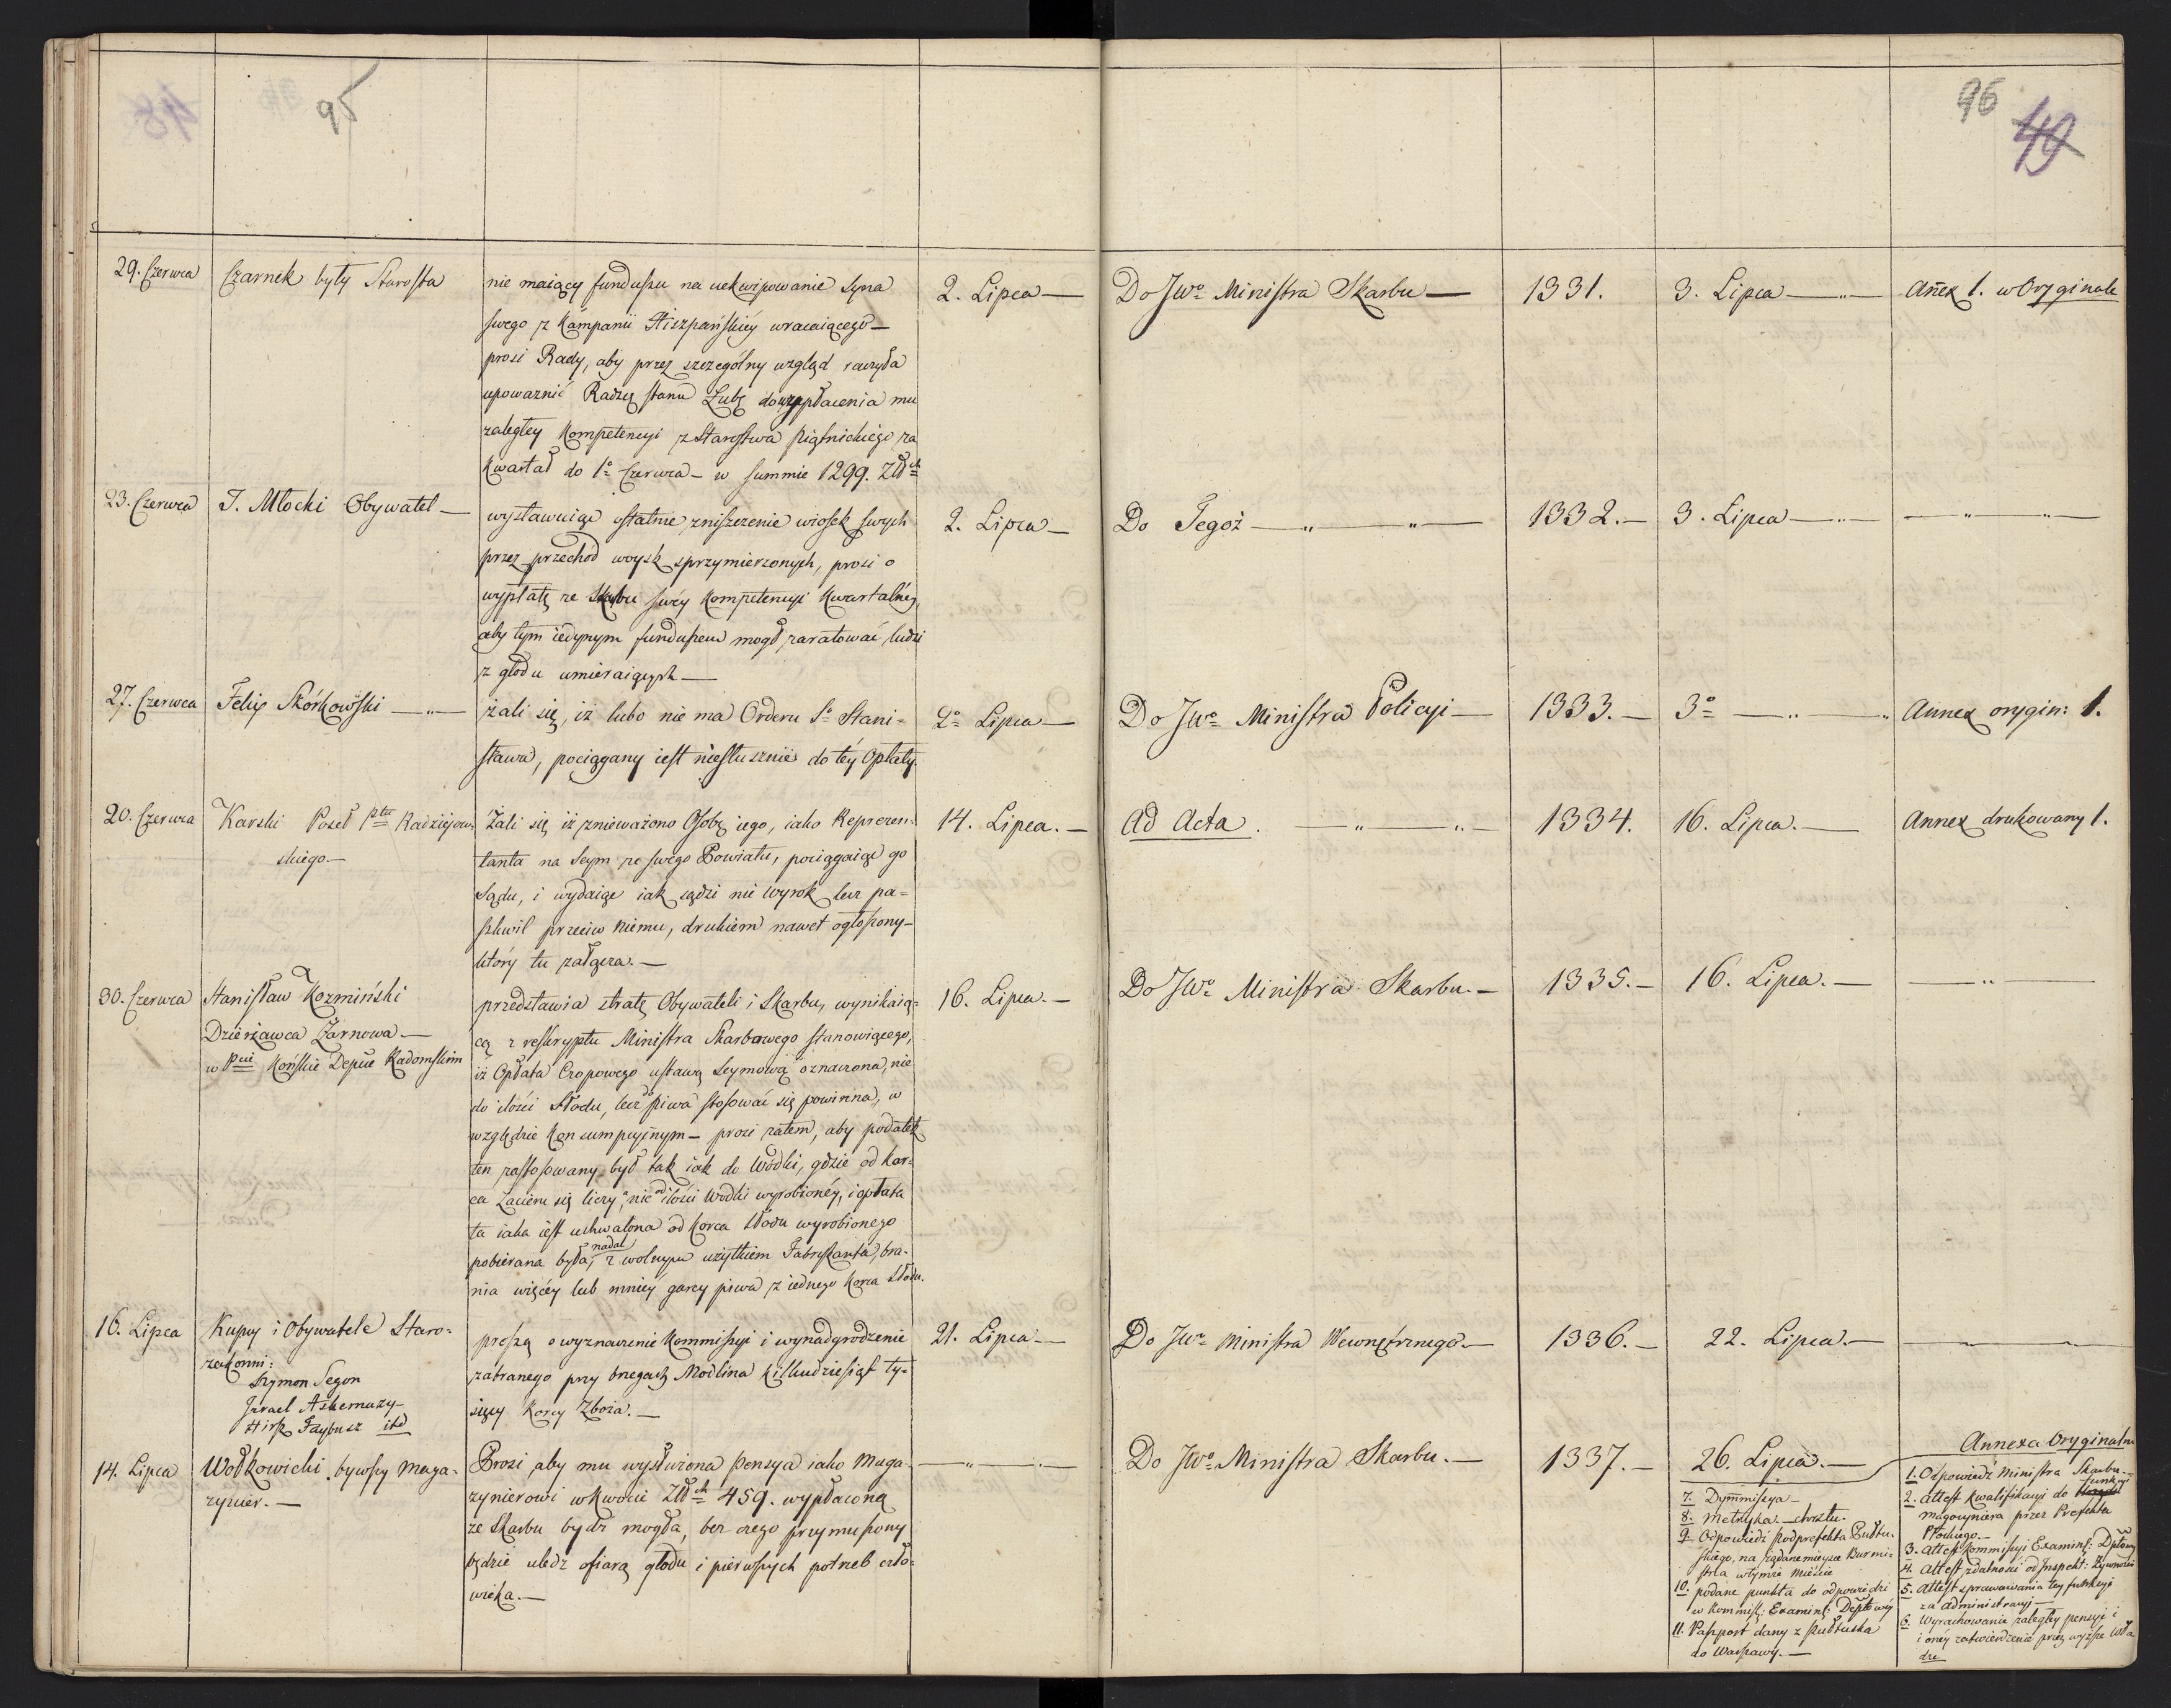 48
95
96
49
29. Czerwca
Czarnek były Starosta
nie maiący funduszu na uekwipowanie syna
swego z Kampanii Hiszpańskiéy wracaiącego —
prosi Rady, aby przez szczególny wzgląd raczyła
upoważnić Radzcę stanu Łubę do wypłacenia mu
zaległey Kompetencyi z Starostwa Piątnickiego za
Kwartał do 1o Czerwca — w summie 1299. Złch
2. Lipca —
Do JWo Ministra Skarbu —
1331.
3. Lipca — „ —
Añex 1. w Oryginale
23. Czerwca
T. Młocki Obywatel —
wystawuiąc ostatnie zniszczenie wiosek swych
przez przechod woysk sprzymierzonych, prosi o
wypłatę ze Skarbu swéy Kompetencyi Kwartalnéy,
aby tym iedynym funduszem mogł zaratować ludzi
z głodu umieraiących —
2. Lipca —
Do Tegoż — „ — „ —
1332. —
3. Lipca — „ —
— „ — „ —
27. Czerwca
Felix Skórkowski — „ —
żali się, iż lubo nie ma Orderu So Stani=
sława, pociągany iest niesłusznie do téy Opłaty
2o Lipca —
Do JWo Ministra Policyi —
1333. —
3o — „ — „
Annex orygin: 1.
20. Czerwca
Karski Poseł Ptu Radziéjow=
skiego. —
Żali się iż znieważono Osobę iego, iako Reprezen=
tanta na Seym ze swego Powiatu, pociągaiąc go
Sądu, i wydaiąc iak sądzi nie wyrok lecz pa=
szkwil przeciw niemu, drukiem nawet ogłoszony —
który tu załącza. —
14. Lipca. —
Ad Acta. — „ — „ —
1334.
16. Lipca. —
Annex drukowany 1.
30. Czerwca
Stanisław Kozmiński
Dzierżawca Żarnowa —
w Pcie Końskie Depcie Radomskim
przedstawia stratę Obywateli i Skarbu, wynikaią=
cą z reskryptu Ministra Skarbowego stanowiącego,
iż Opłata Czopowego ustawą Seymową oznaczona, nie
do ilości Słodu, lecz do piwa stosować się powinna, w
względzie Konsumpcyinym — prosi zatem, aby podatek
ten zastosowany był tak iak do Wódki, gdzie od kor=
ca Zacieru się liczy, a nie od ilości Wodki wyrobionéy, i opłata
ta iaka iest uchwalona od Korca Słodu wyrobionego
pobierana była, nadal z wolnym użytkiem Fabrykanta, bra=
nia więcéy lub mniéy garcy piwa z iednego Korca Słodu.
16. Lipca. —
Do JWo Ministra Skarbu. —
1335. —
16. Lipca. —
— „ —
16. Lipca
Kupcy i Obywatele Staro=
zakonni:
Szymon Segon
Izrael Askenazy —
Hirsz Faybusz itd
proszą o wyznaczenie Kommissyi i wynadgrodzenie
zabranego przy brzegach Modlina Kilkudziesiąt ty=
sięcy Korcy Zboża. —
21. Lipca —
Do JWo Ministra Wewnętrznego. —
1336. —
22. Lipca. —
14. Lipca
Wołkowicki bywszy Maga=
zynier. —
Prosi aby mu wysłużona pensya iako Maga=
zynierowi w kwocie Złch 459. wypłaconą
ze Skarbu bydź mogła, bez czego przymuszony
będzie uledz ofiarą głodu i pierwszych potrzeb czło=
wieka. —
— „ — „ —
Do JWo Ministra Skarbu. —
1337. —
26. Lipca. —
7. Dymmissya —
8. Metryka — chrztu.
9. Odpowiedź Podprefekta Pułtu=
skiego, na żądane mieysce Burmi=
strza w tymże mieście
10. podane punkta do odpowiedzi
w Kommiss: Examin: Depłtowéy
11. Passport dany z Pułtuska
do Warszawy. —
Annexa Oryginalne
1. Odpowiedź Ministra Skarbu. —
2. Attest kwalifikacyi do funkcyi
Magazyniera przez Prefekta
Płockiego. —
3. Attest Kommissyi Examin: Dpłtowy
4. Attest zdatności od Inspekt: Żywności
5. Attest sprawowania tey funkcyi
za Administracyi —
6. Wyrachowanie zaległéy pensyi i
i onéy zatwierdzenie przez wyższe wła
dze